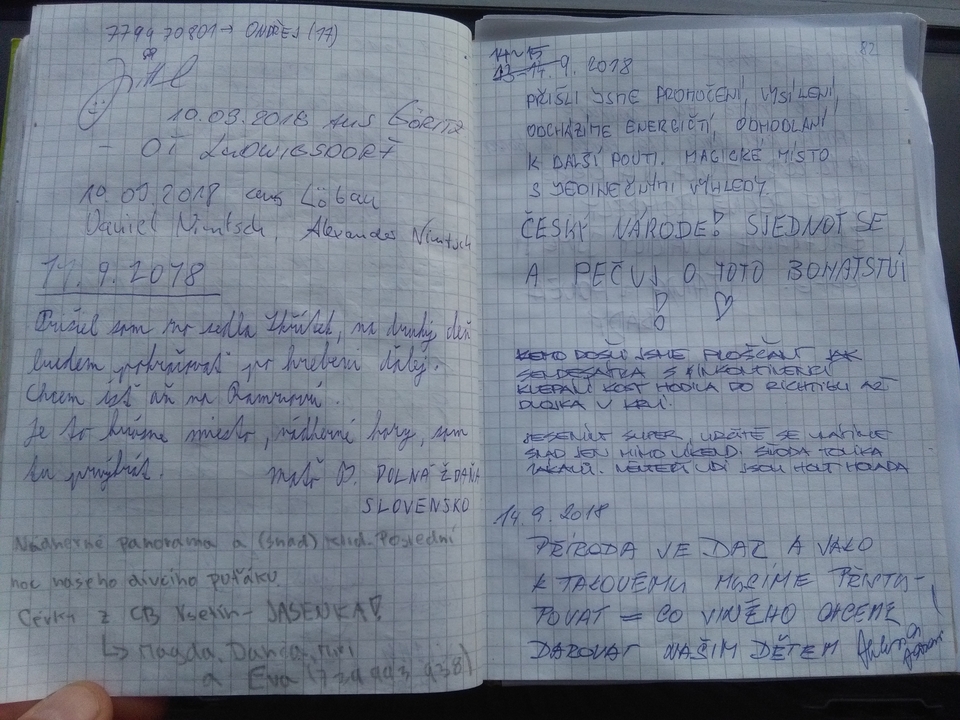 779970801 → ONDŘEJ (17)
10.09.2018 aus GÖRLITZ
- OT LUDWIGSDORF
10.09.2018 aus Löbau
Daniel Nimtsch, Alexander Nimtsch
11.9.2018
Prišiel som na sedlo Skřítek, na druhý deň
budem pokračovať po hrebeni ďalej.
Chcem ísť až na Ramzovú.
Je to krásne miesto, nádherné hory, som
tu prvýkrát. Matúš D. DOLNÁ ŽDAŇA
SLOVENSKO
Nádherné panorama a (snad) klid. Poslední
noc našeho dívčího puťáku.
Cérky z CB Vsetín - JASENKA!
↳ Magda, Danča, Miri
a Eva
82
14-15
13-14. 9. 2018
PŘIŠLI JSME PROMOČENÍ, VYSÍLENÍ,
ODCHÁZÍME ENERGIČTÍ, ODHODLANÍ
K DALŠÍ POUTI. MAGICKÉ MÍSTO
S JEDINEČNÝMI VÝHLEDY.
ČESKÝ NÁRODE! SJEDNOŤ SE
A PEČUJ O TOTO BOHATSTVÍ
! ♡
DOŠLI JSME
S INKONTINENCÍ
KOST HODILA DO AŽ
V KRVI.
SUPER, URČITĚ SE VRÁTÍME
SNAD JEN MIMO VÍKEND. ŠKODA TOLIKA
. NĚKTEŘÍ LIDI JSOU HOLT HOVADA
14.9.2018
PŘÍRODA JE DAR A JAKO
K TAKOVÉMU MUSÍME PŘISTU-
POVAT = CO JINÉHO CHCEME
DAROVAT NAŠIM DĚTEM!